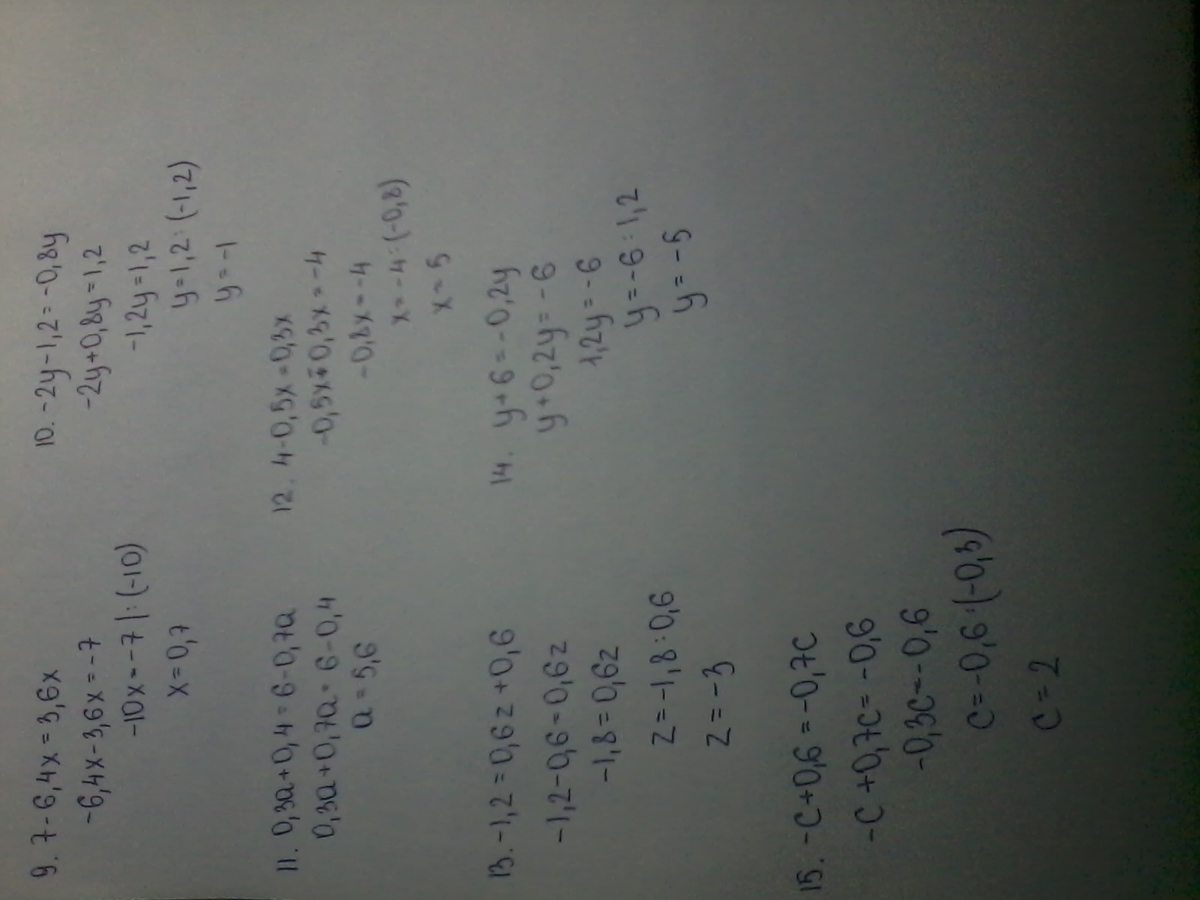 9. 7-6,4x=3,6x
-6,4x-3,6x=-7
-10x=-7 |:(-10)
x=0,7
10. -2y-1,2=-0,8y
-2y+0,8y=1,2
-1,2y=1,2
y=1,2:(-1,2)
y=-1
11. 0,3a+0,4=6-0,7a
0,3a+0,7a=6-0,4
a=5,6
12. 4-0,5x=0,3x
-0,5x-0,3x=-4
-0,8x=-4
x=-4:(-0,8)
x=5
13. -1,2=0,6z+0,6
-1,2-0,6=0,6z
-1,8=0,6z
z=-1,8:0,6
z=-3
14. y+6=-0,2y
y+0,2y=-6
1,2y=-6
y=-6:1,2
y=-5
15. -c+0,6=-0,7c
-c+0,7c=-0,6
-0,3c=-0,6
c=-0,6:(-0,3)
c=2